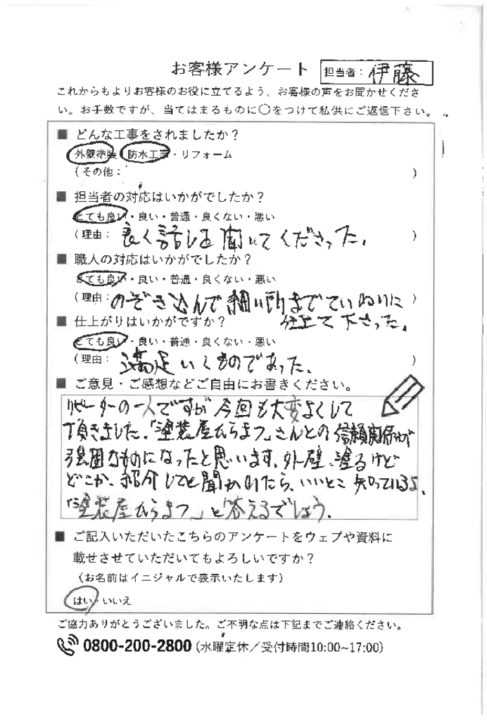 お客様アンケート 担当者: 伊藤
これからもよりお客様のお役に立てるよう、お客様の声をお聞かせくださ
い。お手数ですが、当てはまるものに〇をつけて私供にご返信下さい。
■ どんな工事をされましたか?
外壁塗装・防水工事・リフォーム
(その他: )
■ 担当者の対応はいかがでしたか?
とても良い・良い・普通・良くない・悪い
(理由: 良く話しを聞いてくださった。 )
■ 職人の対応はいかがでしたか?
とても良い・良い・普通・良くない・悪い
(理由: のぞき込んで細い所までていねいに )
仕上て下さった。
■ 仕上がりはいかがですか?
とても良い・良い・普通・良くない・悪い
(理由: 満足いくものであった。 )
■ ご意見・ご感想などご自由にお書きください。
リピーターの一人ですが今回も大変よくして
頂きました。「塗装屋むらまつ」さんとの信頼関係が
強固なものになったと思います。外壁、塗るけど
どこか、紹介してと聞かれたら、いいとこ知っているよ、
「塗装屋むらまつ」と答えるでしょう。
■ ご記入いただいたこちらのアンケートをウェブや資料に
載せさせていただいてもよろしいですか?
(お名前はイニシャルで表示いたします)
はい・いいえ
ご協力ありがとうございました。ご不明な点は下記までご連絡ください。
0800-200-2800 (水曜定休/受付時間10:00~17:00)